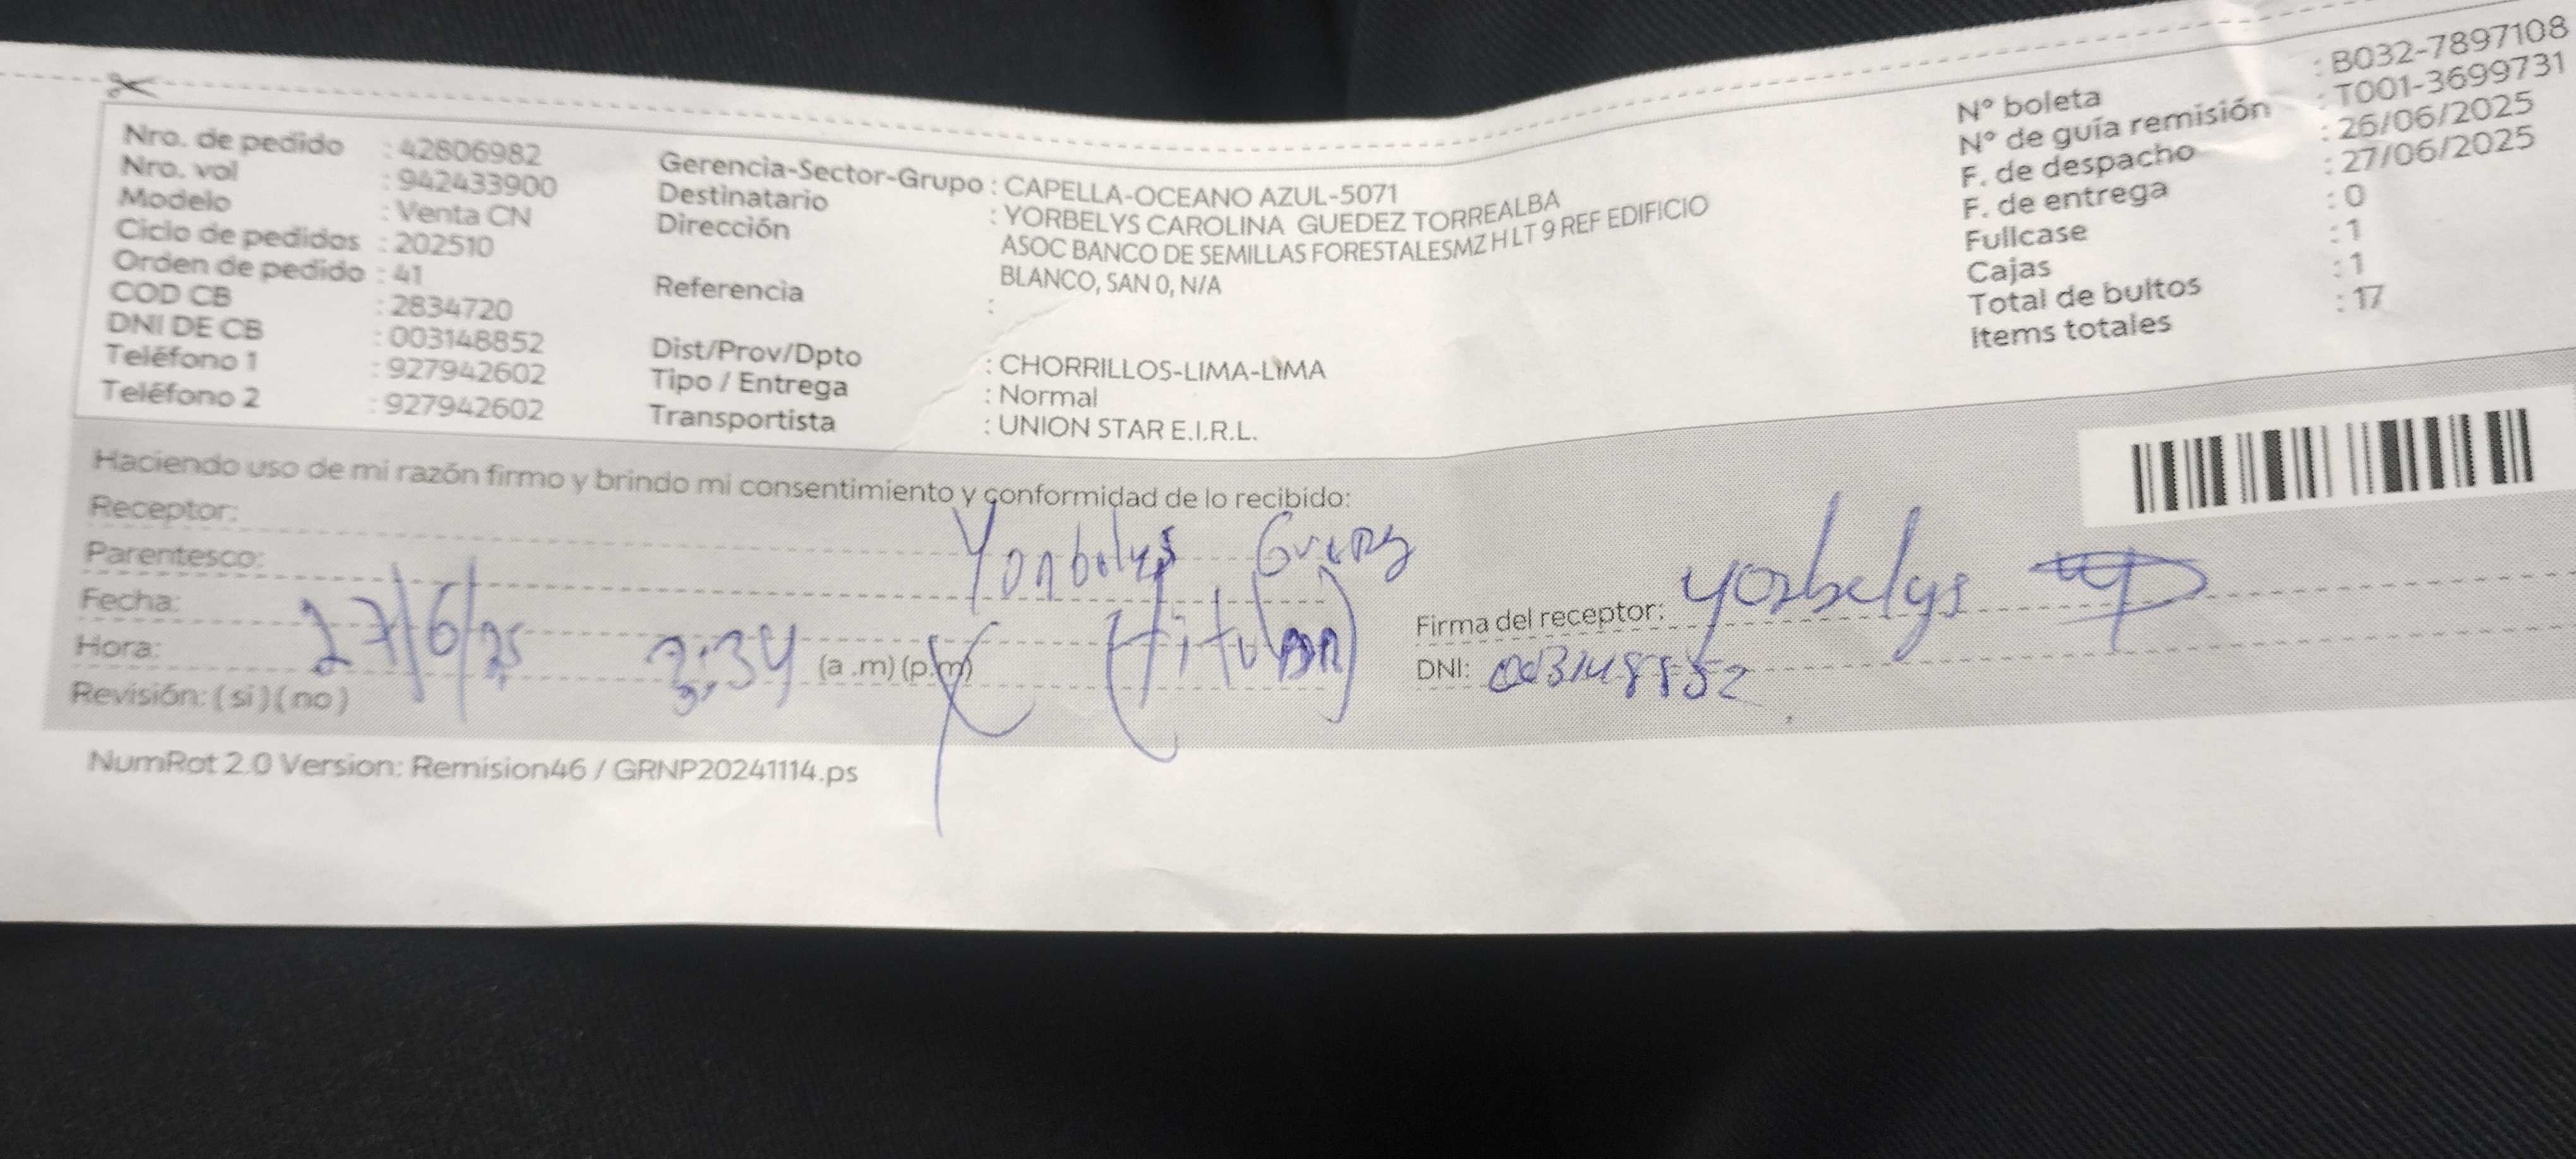 Nro. de pedido : 42806982
Nro. vol : 942433900
Modelo : Venta CN
Ciclo de pedidos : 202510
Orden de pedido : 41
COD CB : 2834720
DNI DE CB : 003148852
Teléfono 1 : 927942602
Teléfono 2 : 927942602
Gerencia-Sector-Grupo : CAPELLA-OCEANO AZUL-5071
Destinatario : YORBELYS CAROLINA GUEDEZ TORREALBA
Dirección ASOC BANCO DE SEMILLAS FORESTALESMZ H LT 9 REF EDIFICIO
BLANCO, SAN 0, N/A
Referencia :
Dist/Prov/Dpto : CHORRILLOS-LIMA-LIMA
Tipo / Entrega : Normal
Transportista : UNION STAR E.I.R.L.
N° boleta : B032-7897108
N° de guía remisión : T001-3699731
F. de despacho : 26/06/2025
F. de entrega : 27/06/2025
Fullcase : 0
Cajas : 1
Total de bultos : 1
Items totales : 17
Haciendo uso de mi razón firmo y brindo mi consentimiento y conformidad de lo recibido:
Receptor: Yorbelys
Parentesco: (titular)
Fecha: 27/6/25
Hora: 3:34 (a.m) (p.m)
Revisión: ( si ) ( no )
Firma del receptor: Yorbelys
DNI: 003148852
NumRot 2.0 Version: Remision46 / GRNP20241114.ps